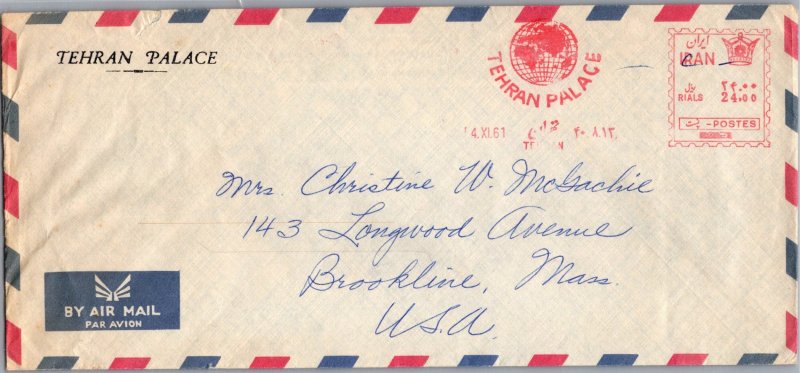 TEHRAN PALACE
TEHRAN PALACE
ایران
IRAN
ریال ۲۴.۰۰
RIALS 24.00
پست - POSTES
4.XI.61 تهران ۴۰.۸.۱۳
TEHRAN
Mrs. Christine W. McGachie
143 Longwood Avenue
Brookline, Mass.
U.S.A.
BY AIR MAIL
PAR AVION